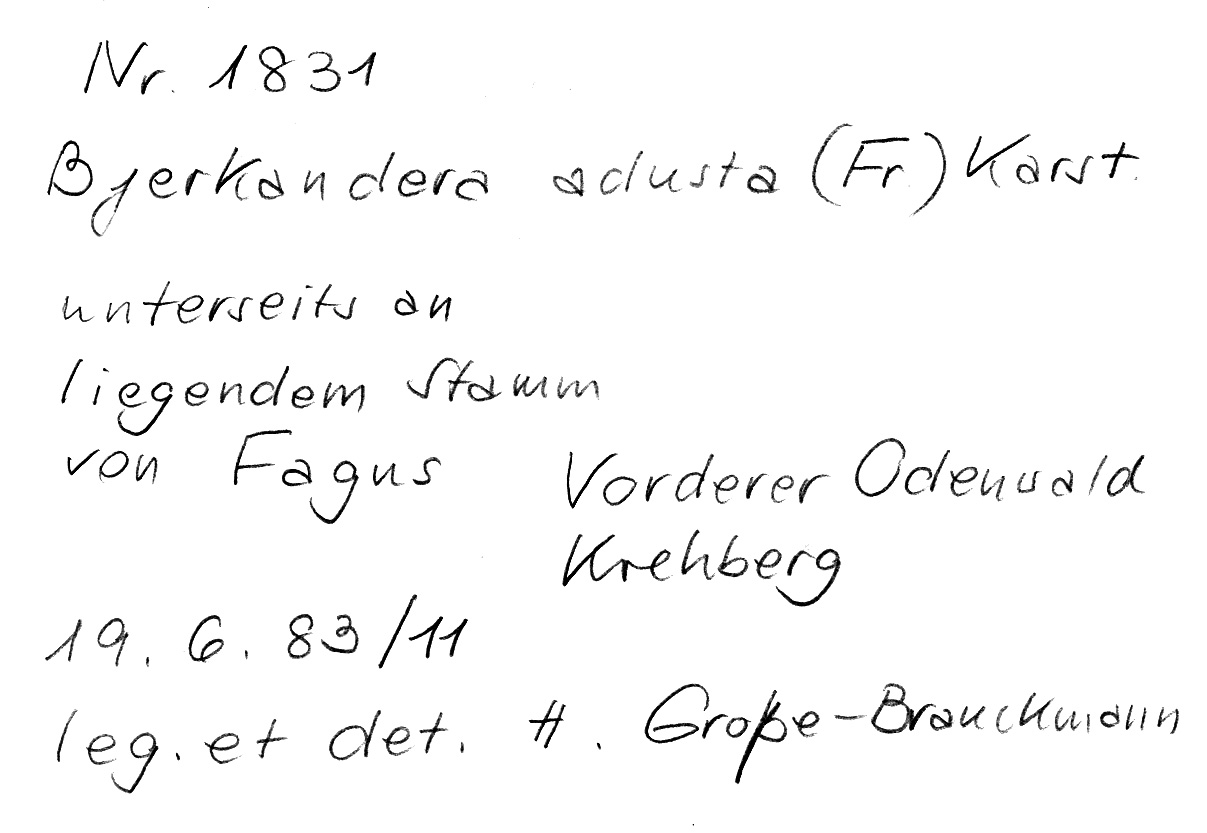 Nr. 1831
Bjerkandera adusta (Fr.) Karst.
unterseits an
liegendem Stamm
von Fagus
Vorderer Odenwald
Krehberg
19. 6. 83/11
leg. et det. H. Große-Brauckmann